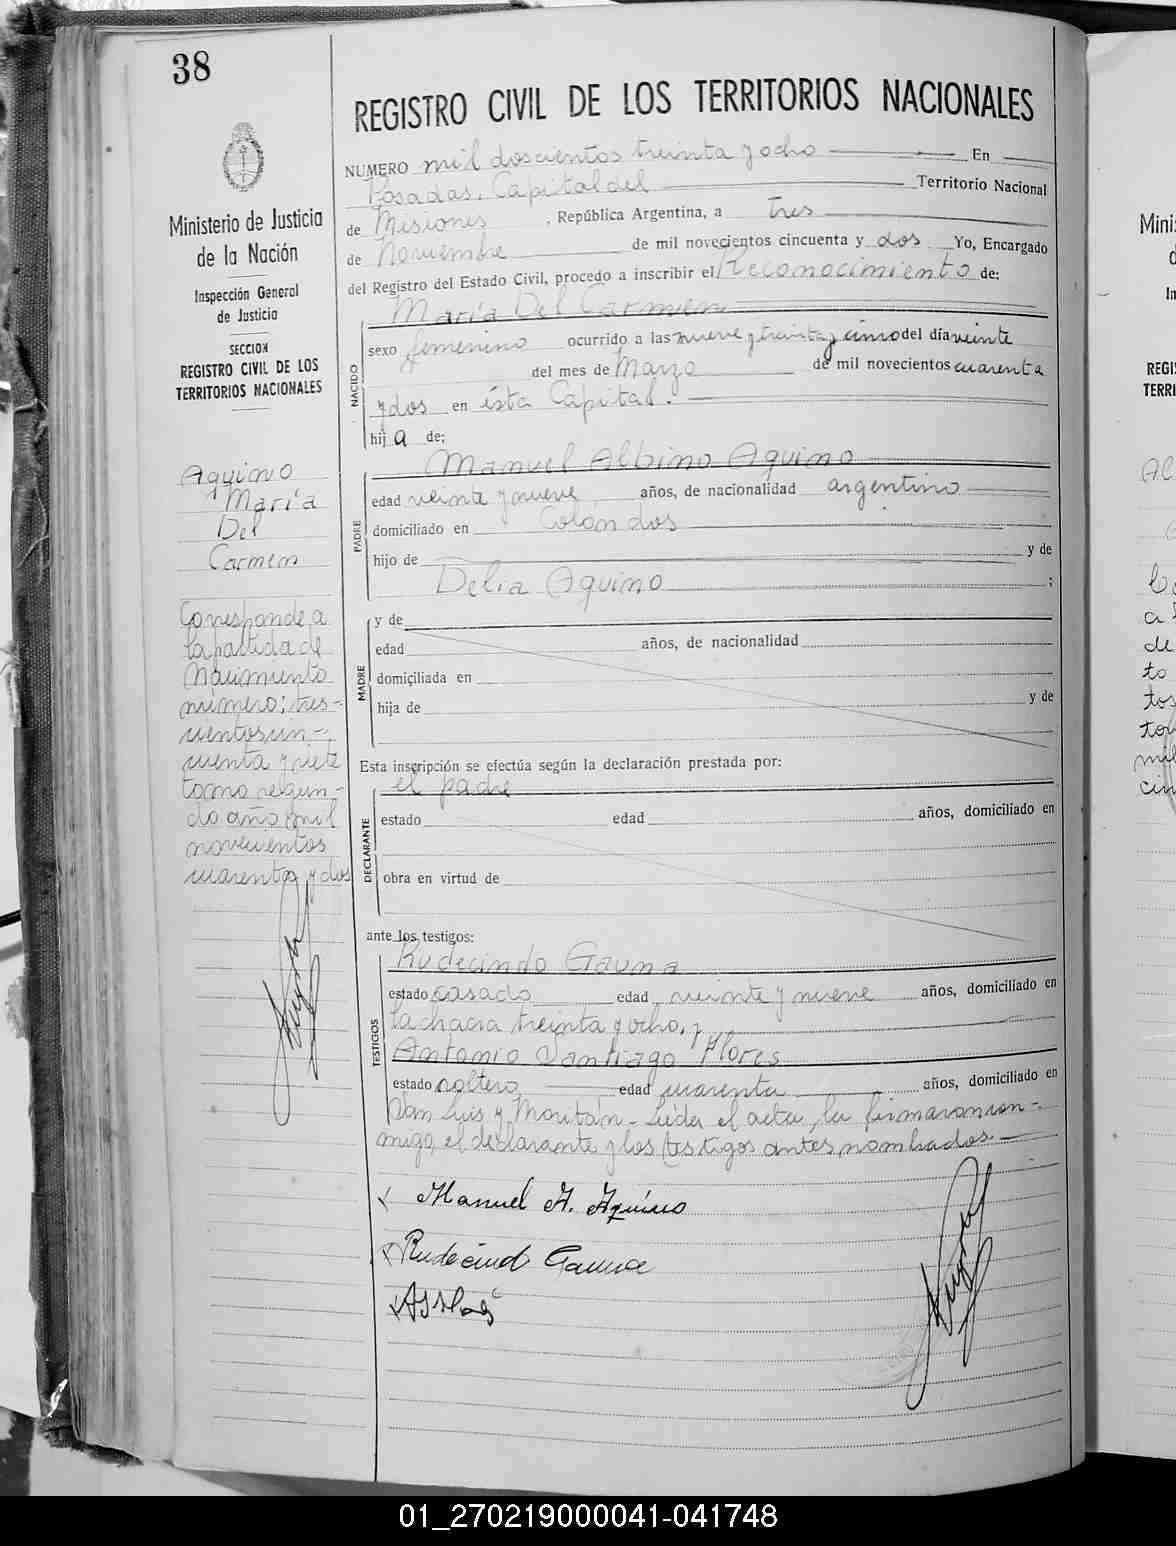 38
Ministerio de Justicia
de la Nación
Inspección General
de Justicia
SECCION
REGISTRO CIVIL DE LOS
TERRITORIOS NACIONALES
Aquino
María
Del
Carmen
Corresponde a
la partida de
Nacimiento
número; tres-
cientos cin-
cuenta y siete
tomo segun-
do año mil
novecientos
cuarenta y dos
REGISTRO CIVIL DE LOS TERRITORIOS NACIONALES
NUMERO mil doscientos treinta y ocho En
Posadas, Capital del Territorio Nacional
de Misiones , República Argentina, a tres
de Noviembre de mil novecientos cincuenta y dos Yo, Encargado
del Registro del Estado Civil, procedo a inscribir el Reconocimiento de:
María Del Carmen
NACIDO
sexo femenino ocurrido a las nueve y treinta y cinco del día veinte
del mes de Marzo de mil novecientos cuarenta
y dos en ésta Capital.
hij a de:
Manuel Albino Aquino
PADRE
edad veinte y nueve años, de nacionalidad argentino
domiciliado en Colón dos
hijo de y de
Delia Aquino ;
MADRE
y de
edad años, de nacionalidad
domiciliada en
hija de y de
Esta inscripción se efectúa según la declaración prestada por:
el padre
DECLARANTE
estado edad años, domiciliado en
obra en virtud de
ante los testigos:
Rudecindo Gauna
TESTIGOS
estado casado edad veinte y nueve años, domiciliado en
la chacra treinta y ocho, y
Antonio Santiago Flores
estado soltero edad cuarenta años, domiciliado en
San Luis y Moritán - Leída el acta, la firmaron con-
migo, el declarante y los testigos antes nombrados
Manuel A. Aquino
Rudecind Gauna
Mini
REGI
TERRI
Al
de
to
tos
mil
cin
01_270219000041-041748